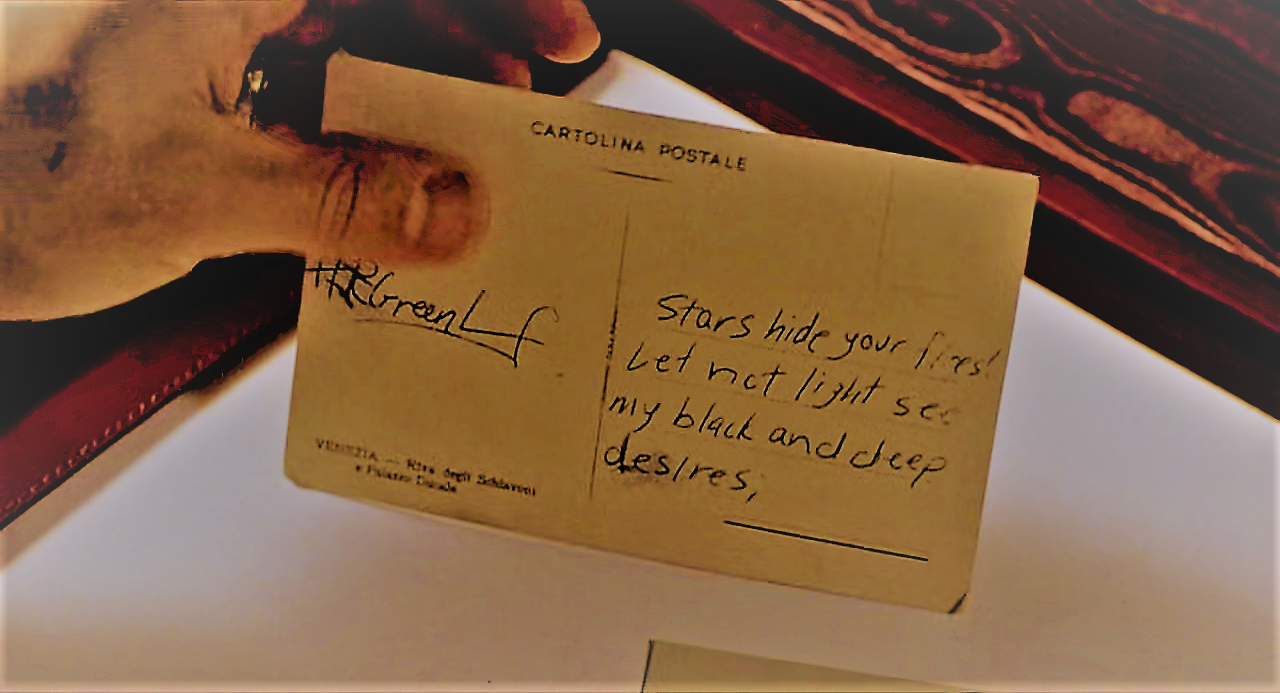 CARTOLINA POSTALE
HRGreenLf
Stars hide your fires!
Let not light see
my black and deep
desires,
VENEZIA — Riva degli Schiavoni
e Palazzo Ducale